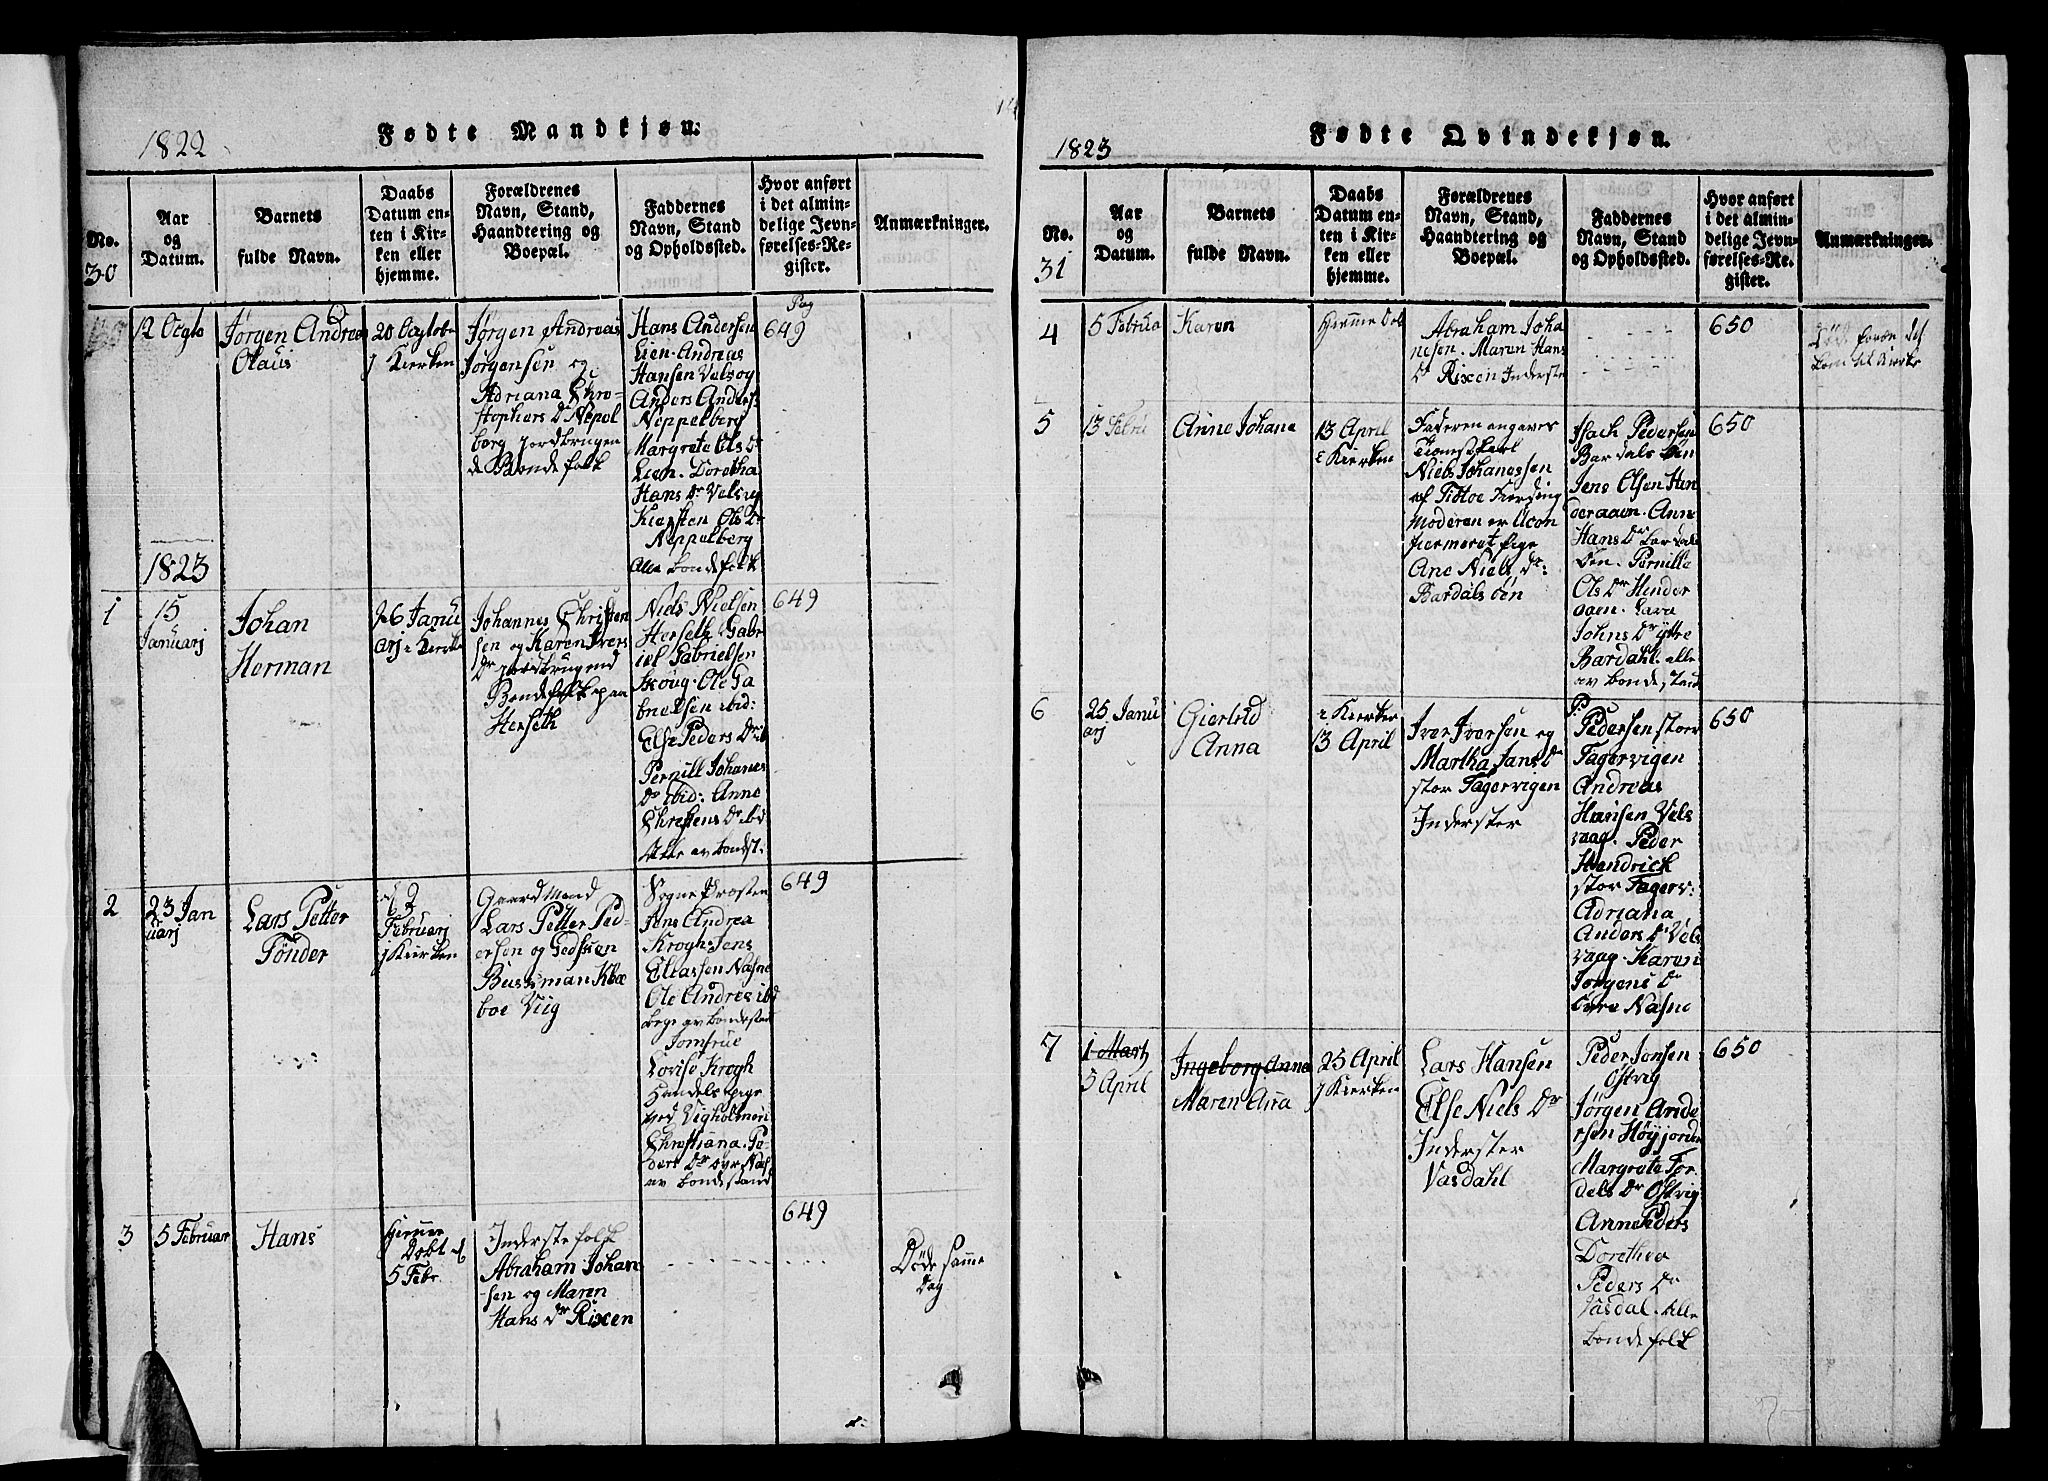 1822
Fødte Mandkjøn.
No.
30
Aar
og
Datum.
Barnets
fulde Navn.
Daabs
Datum en-
ten i Kir-
ken eller
hjemme.
Forældrenes
Navn, Stand,
Haandtering og
Boepæl.
Faddernes
Navn, Stand
og Opholdssted.
Hvor anført
i det almin-
delige Jevn-
førelses-Re-
gister.
Anmærkninger.
12 Octo
Jørgen Andreas
Olaus
20 Octobe
j Kierken
Jørgen Andreas
Jørgensen og
Adriana Chri-
stophers Dr Nepol
berg jordbrugen
de Bondefolk
Hans Andersen
Lien. Andreas
Hansen Velsog
Anders Anders:
Neppelberg
Margrete Ols Dr
Lien. Doretha
Hans Dr Velsvg
Kiersten Ols Dr
Neppelberg
Alle bondefolk
Pag
649
1823
1
15
Januarj
Johan
Herman
26 Janu
arj i Kierke
Johannes Christen
sen og Karen Ivers
Dr jordbrugend
Bondefolk paa
Herseth
Niels Nielsen
Herseth Gabr
iel Gabrielsen
Skoug. Ole Ga
brielsen ibid:
Else Peders Dr ib
Pernill Johanes
Dr ibid: Anne
Christens Dr ibd
Alle av bondst.
649
2
23 Jan
uarj
Lars Petter
Tønder
2
Februarj
j Kierken
Gaard Mand
Lars Petter Ped-
ersen og Gedssen
Bussman Kbæ
boe Viig
Sogne Præsten
Jens Andrea
Krogh. Jens
Eliassen Næsne
Ole Andreas ibd
bege av bondestan
Jomfrue
Lovise Krogh
Handels pige
ved Vigholmen
Christiana. Pe-
ders Dr øvr Næs
av bondestand
649
3
5 Februar
Hans
hjemme
Døbt d
5 Febr.
Inderste folk
Abraham Johan
sen og Maren
Hans dr Rixen
649
Døde samme
Dag
1823
Fødte Qvindekjøn.
No.
31
Aar
og
Datum.
Barnets
fulde Navn.
Daabs
Datum en-
ten i Kir-
ken eller
hjemme.
Forældrenes
Navn, Stand,
Haandtering og
Boepæl.
Faddernes
Navn, Stand
og Opholdssted.
Hvor anført
i det almin-
delige Jevn-
førelses-Re-
gister.
Anmærkninger.
4
5 Februa
Karen
Hjemme Døb
Abraham Joha
nesen. Maren Hans
Dr Rixen Inderste
650
Død foren det
kom til Kirke
5
13 Febru
Anne Johana
13 April
i Kierken
Faderen angaves
Tienestkarl
Niels Johanessen
af Tiötöe Kiersing
Moderen er Ucon
fiermeret pige
Ane Niels Dr:
Bardals öen
Isach Pedersen
Bardals öen
Jens Olsen Hen
deraaen. Anne
Hans Dr bardals
Öen. Pernille
Ols Dr Hinder
aaen. Lava
Johns Dr ÿttre
Bardahl. alle
av bondestand
650
6
25 Janu
arj
Giertrud
Anna
i Kierken
13 April
Iver Iversen og
Martha Jans Dr
stor Fagervigen
Inderster
P:
Pedersen stor
Fagervigen
Andreas
Hansen Vels
vaag. Peder
Hendrick
stor Fagerv:
Adriana
Anders Dr Vels
vaag. Karen
Jørgens Dr
övre Næsne
650
7
1 Martz
5 April
Ingeborg Anna
Maren Anna
25 April
j Kierken
Lars Hansen
Else Niels Dr
Inderster
Vasdahl
Peder Jonsen
Ostvig
Jørgen Ande
rsen Höyjorden
Margrete Tor
dels Dr Ostvig
Anne Peders
Dorethea
Peders Dr
Vasdal. Alle
bonde folk
650